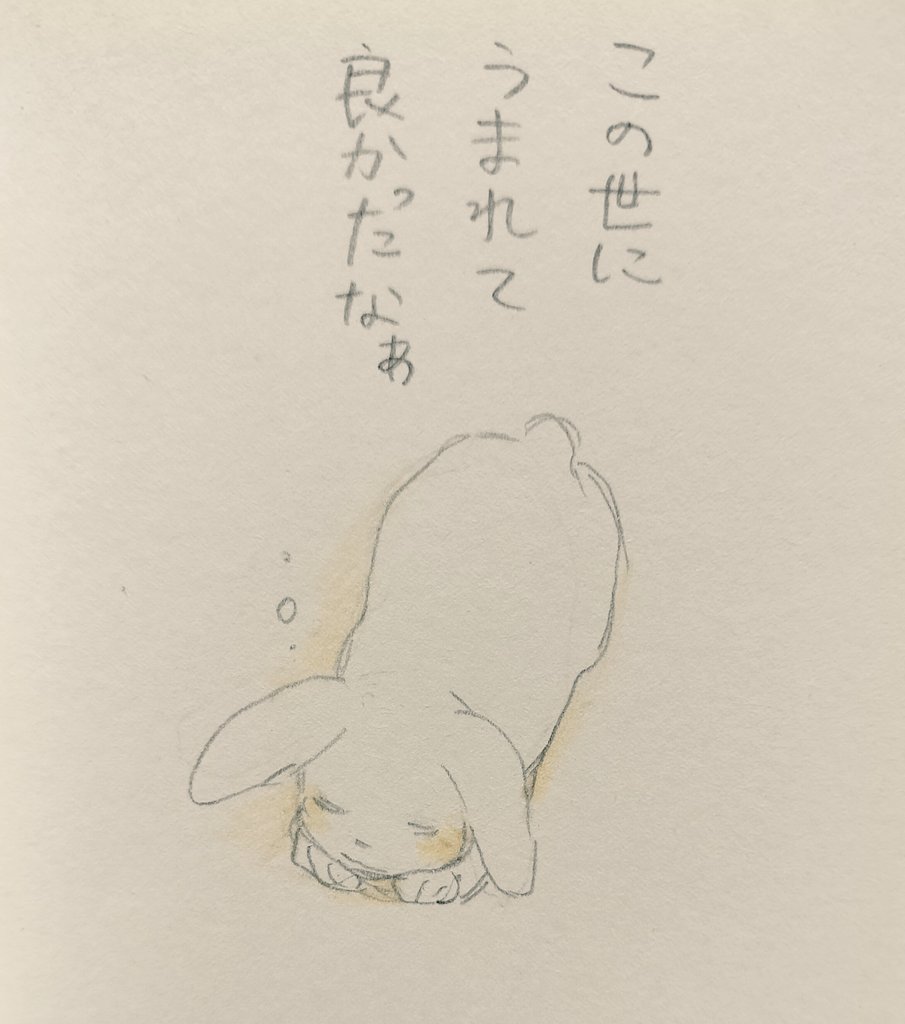 この世に
うまれて
良かったなぁ